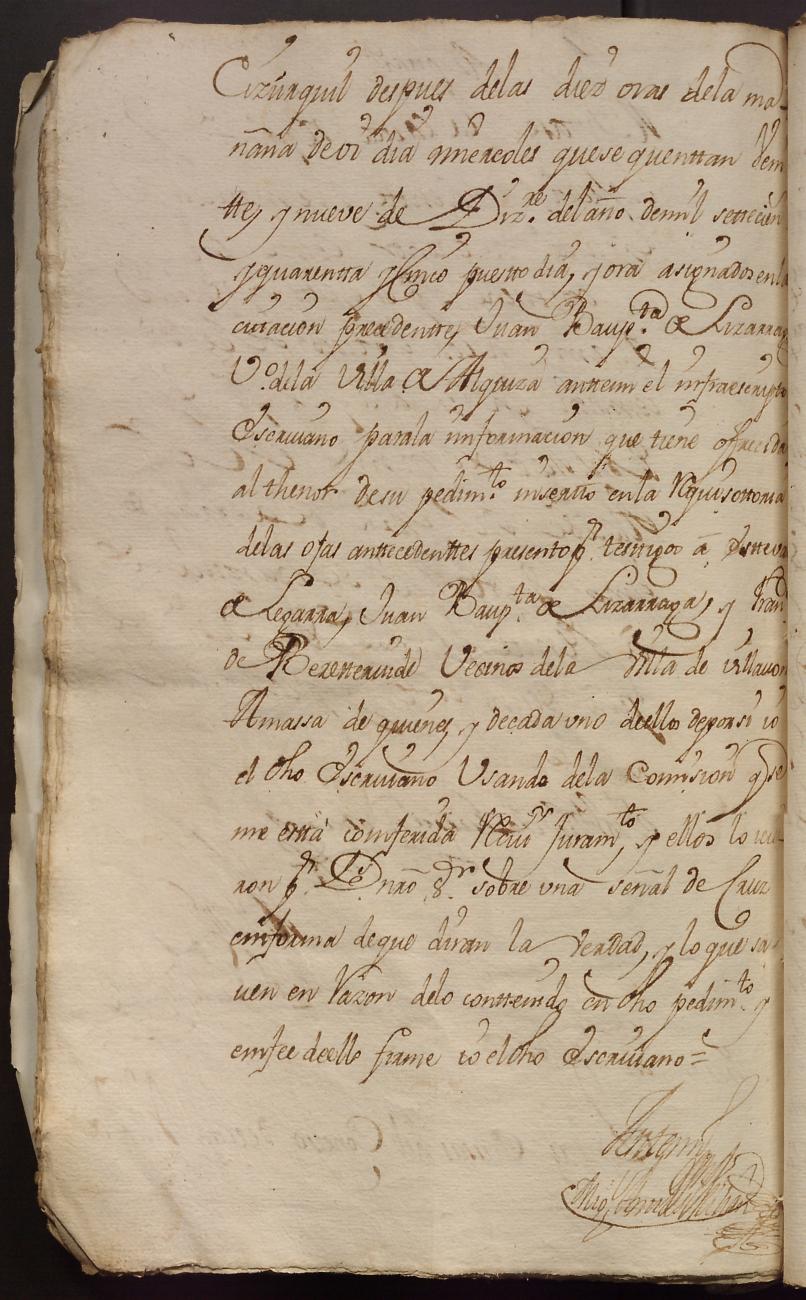 Cizurquil despues delas diez oras dela ma-
ñana de oi dia miercoles que se quenttan vein
tte, y nueve de Diz.re del año de mil settecien
y quarentta y Cinco puestto dia, y ora asignados en la
citacion precedentte, Juan Baup.ta de Lizarrag
V.o dela Villa de Alquiza anttemi el infraescripto
Escriuano parala ynformacion que tiene ofrecida
al thenor de su pedim.to insertto en la Requisottoria
delas ojas anttecedenttes presento p.r testigos a Esteva
de Legarra, Juan Baup.ta de Lizarraga, y Fran
de Bezetteruide Vecinos dela Villa de Villauon
Amassa de quienes, y de cada vno deello deporsi io
el dho Escriuano Vsando dela Comision q se
me esttá comferida Reciui Juram.to, y ellos lo icie
ron p.r D.s nrõ S.r sobre vna señal de Cruz
emforma de que diran la verdad, y lo que sa-
uen en razon delo conttenido en dho pedim.to y
emfee deello firme io el dho Escriuano=
Anttemi